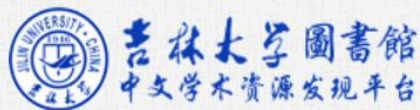 JILIN UNIVERSITY·CHINA
1946
吉林大学
吉林大学圖書館
中文学术资源发现平台